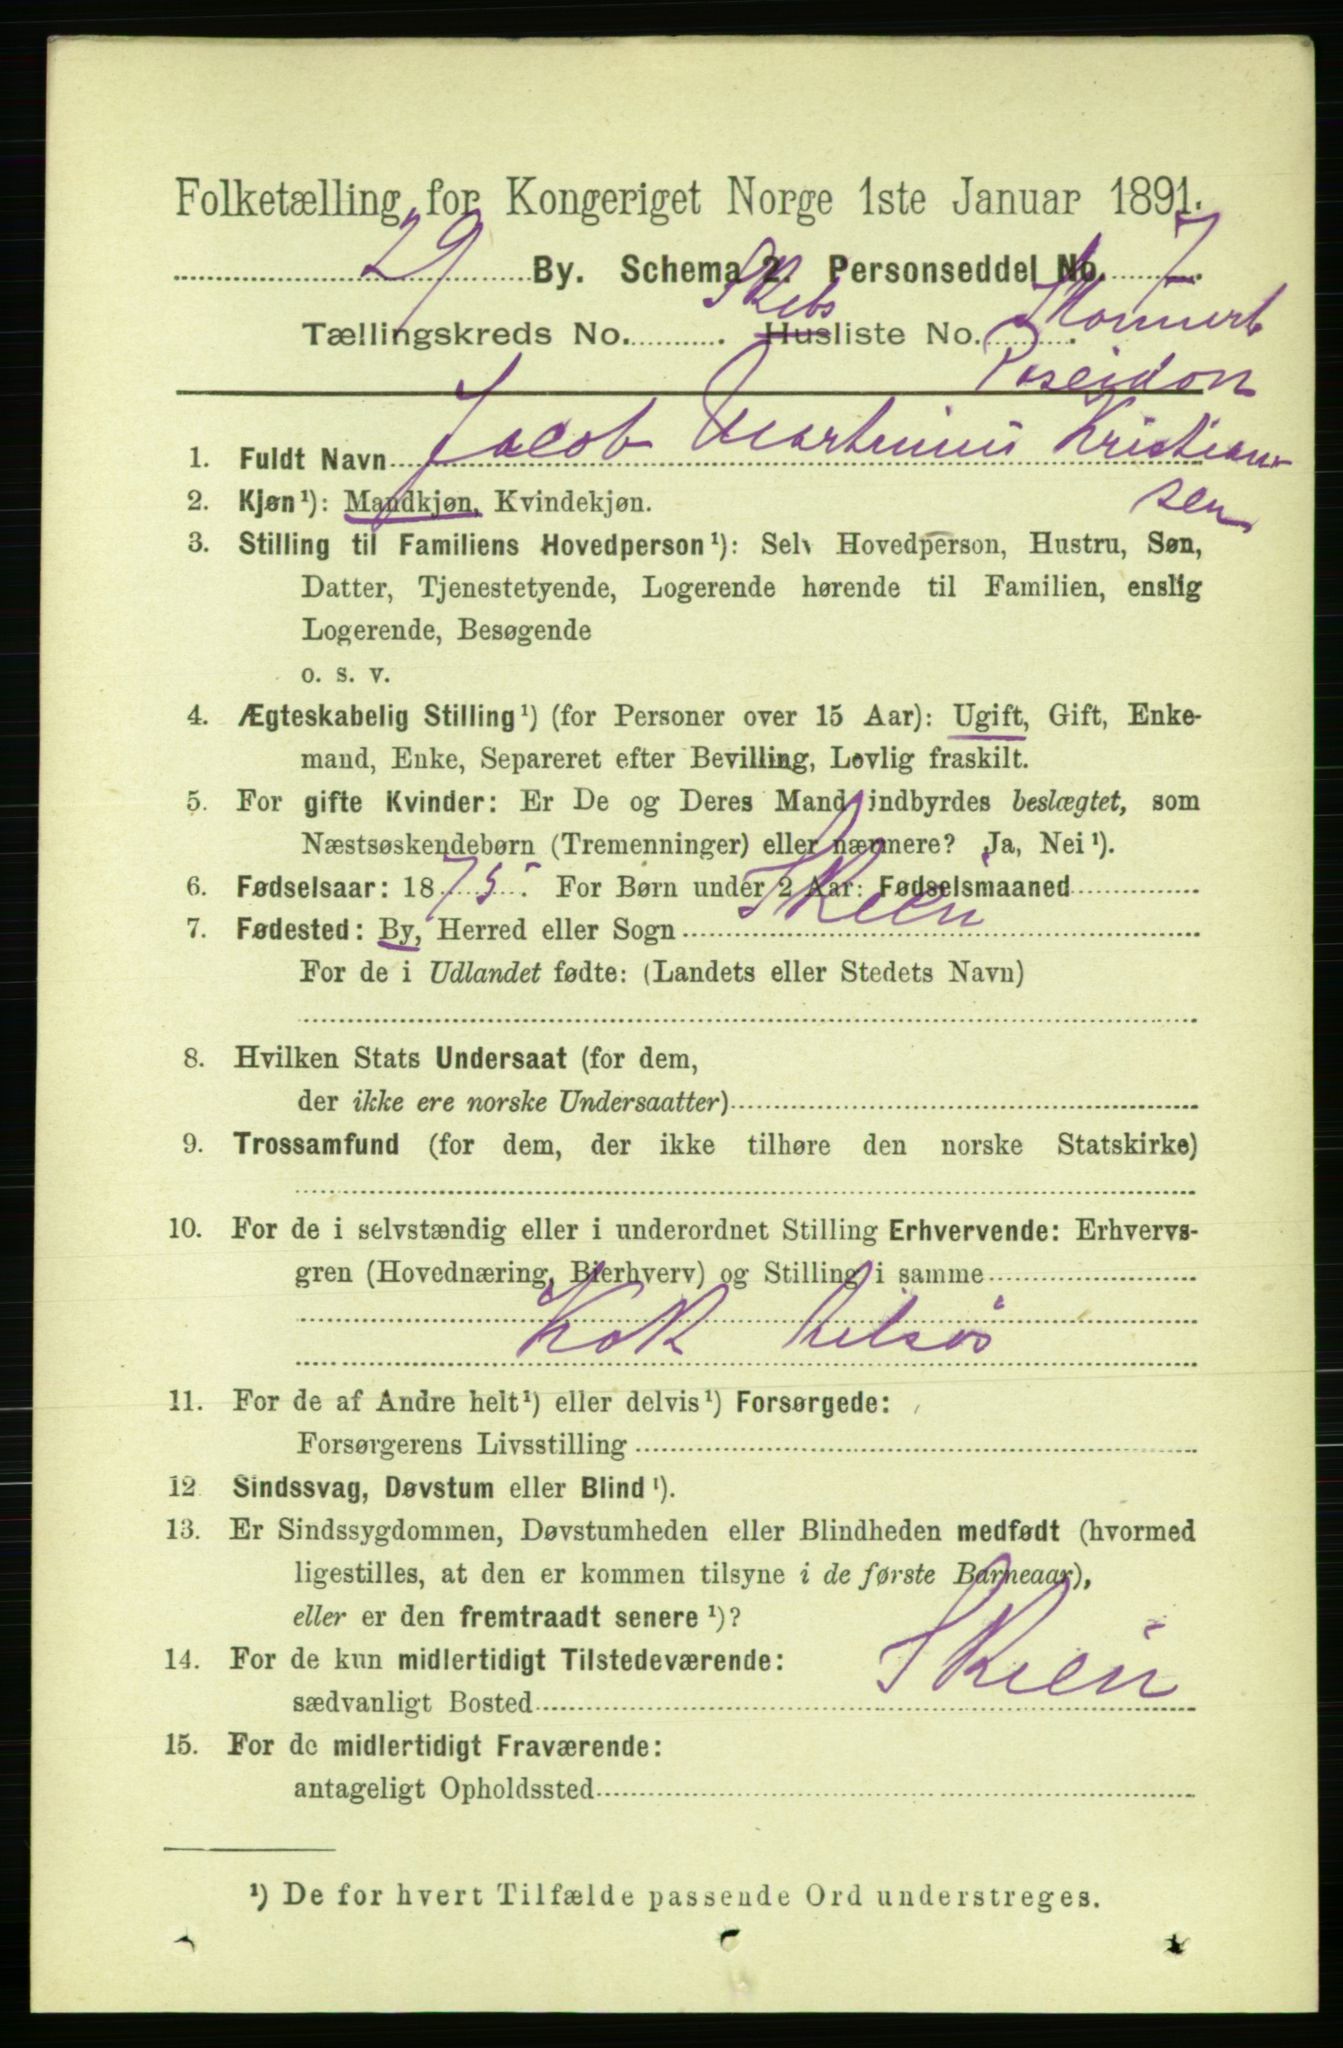 Folketælling for Kongeriget Norge 1ste Januar 1891.
29 By. Schema 2. Personseddel No. 7.
Tællingskreds No. . Skibs Husliste No.
Poseidon
1. Fuldt Navn Jacob Martinius Kristian-
sen
2. Kjøn¹): Mandkjøn, Kvindekjøn.
3. Stilling til Familiens Hovedperson¹): Selv Hovedperson, Hustru, Søn,
Datter, Tjenestetyende, Logerende hørende til Familien, enslig
Logerende, Besøgende
o. s. v.
4. Ægteskabelig Stilling¹) (for Personer over 15 Aar): Ugift, Gift, Enke-
mand, Enke, Separeret efter Bevilling, Lovlig fraskilt.
5. For gifte Kvinder: Er De og Deres Mand indbyrdes beslægtet, som
Næstsøskendebørn (Tremenninger) eller nærmere? Ja, Nei¹).
6. Fødselsaar: 1875. For Børn under 2 Aar: Fødselsmaaned
7. Fødested: By, Herred eller Sogn Skien
For de i Udlandet fødte: (Landets eller Stedets Navn)
8. Hvilken Stats Undersaat (for dem,
der ikke ere norske Undersaatter)
9. Trossamfund (for dem, der ikke tilhøre den norske Statskirke)
10. For de i selvstændig eller i underordnet Stilling Erhvervende: Erhvervs-
gren (Hovednæring, Bierhverv) og Stilling i samme
Kok tilsøs
11. For de af Andre helt¹) eller delvis¹) Forsørgede:
Forsørgerens Livsstilling
12 Sindssvag, Døvstum eller Blind¹).
13. Er Sindssygdommen, Døvstumheden eller Blindheden medfødt (hvormed
ligestilles, at den er kommen tilsyne i de første Barneaar),
eller er den fremtraadt senere¹)?
14. For de kun midlertidigt Tilstedeværende:
sædvanligt Bosted Skien
15. For de midlertidigt Fraværende:
antageligt Opholdssted
¹) De for hvert Tilfælde passende Ord understreges.